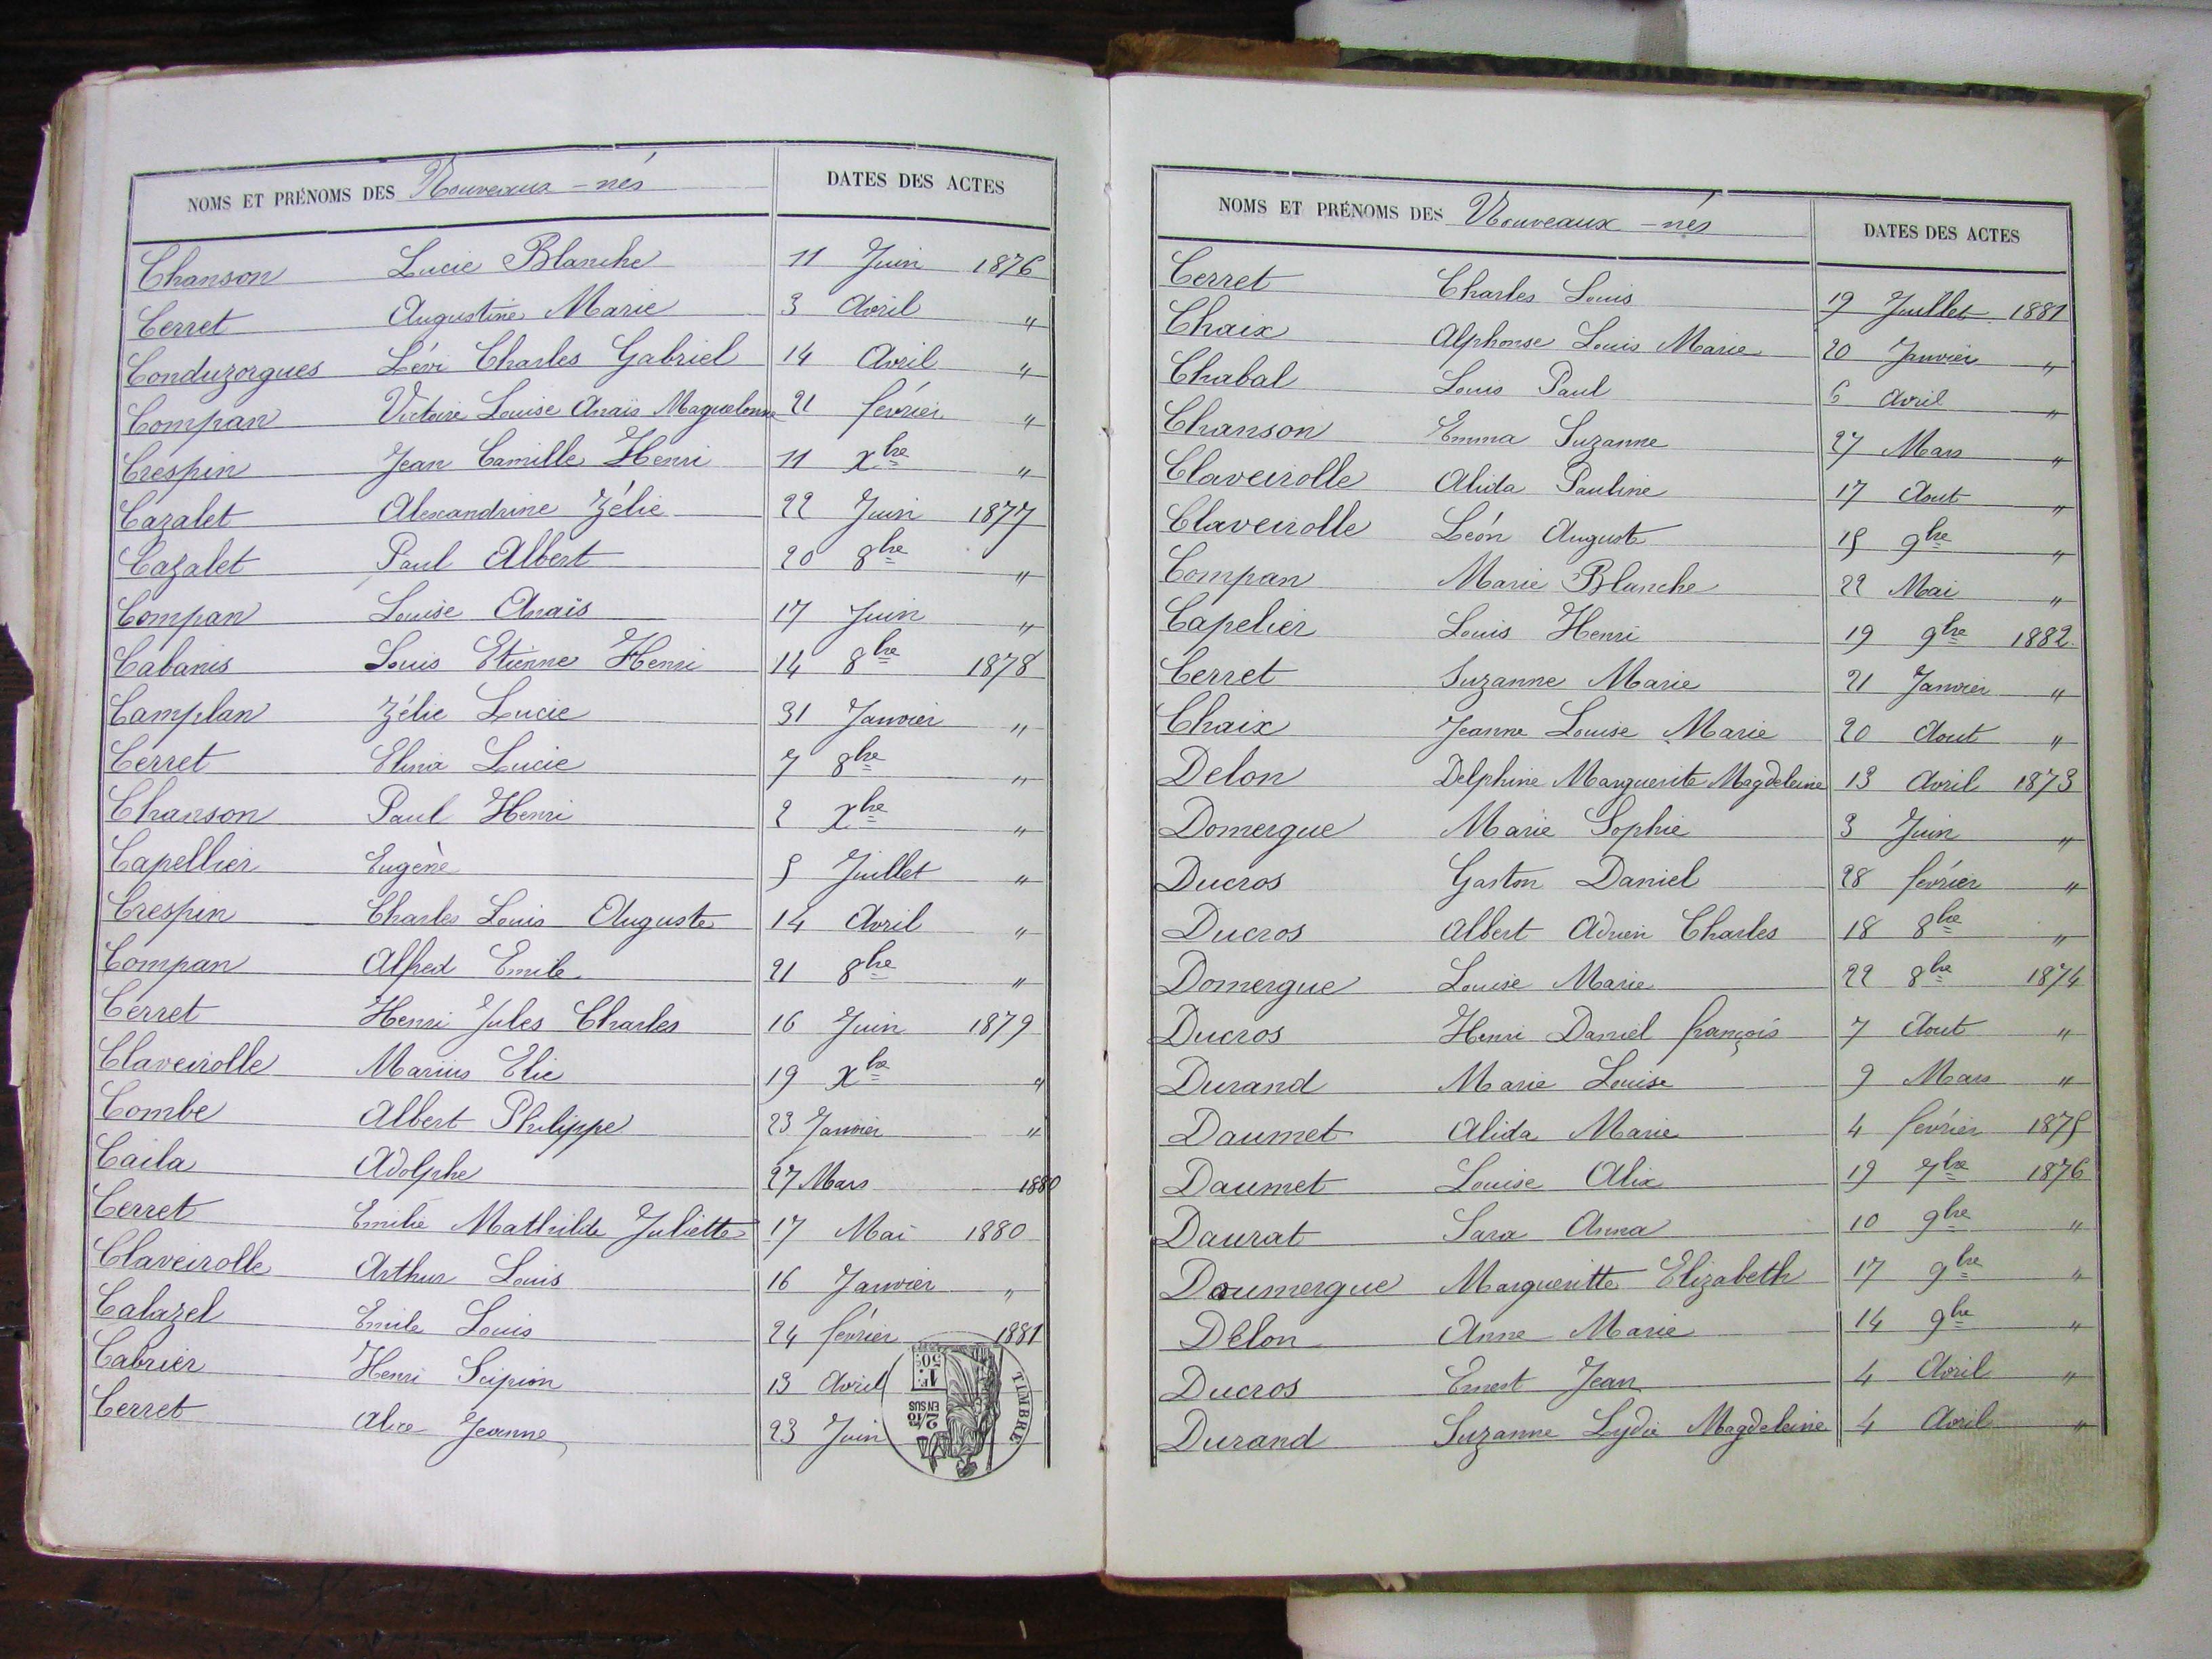 NOMS ET PRÉNOMS DES Nouveaux-nés DATES DES ACTES
Chanson Lucie Blanche 11 Juin 1876
Cerret Augustine Marie 3 Avril "
Conduzorgues Lévi Charles Gabriel 14 Avril "
Compan Victoire Louise Anaïs Maguelonne 21 février "
Crespin Jean Camille Henri 11 Xbre "
Cazalet Alexandrine Zélie 22 Juin 1877
Cazalet Paul Albert 20 8bre "
Compan Louise Anaïs 17 Juin "
Cabanis Louis Etienne Henri 14 8bre 1878
Camplan Zélie Lucie 31 Janvier "
Cerret Elina Lucie 7 8bre "
Chanson Paul Henri 2 Xbre "
Capellier Eugène 5 Juillet "
Crespin Charles Louis Auguste 14 Avril "
Compan Alfred Emile 21 8bre "
Cerret Henri Jules Charles 16 Juin 1879
Claveirolle Marius Elie 19 Xbre "
Combe Albert Philippe 23 Janvier "
Caila Adolphe 27 Mars 1880
Cerret Emilie Mathilde Juliette 17 Mai 1880
Claveirolle Arthur Louis 16 Janvier "
Calazel Emile Louis 24 février 1881
Cabrier Henri Scipion 13 Avril
Cerret Alice Jeanne 23 Juin
TIMBRE
1F. 50c.
2/10 EN SUS
NOMS ET PRÉNOMS DES Nouveaux-nés DATES DES ACTES
Cerret Charles Louis 19 Juillet 1881
Chaix Alphonse Louis Marie 20 Janvier "
Chabal Louis Paul 6 Avril "
Chanson Emma Suzanne 27 Mars "
Claveirolle Alida Pauline 17 Aout "
Claveirolle Léon Auguste 15 9bre "
Compan Marie Blanche 22 Mai "
Capelier Louis Henri 19 9bre 1882
Cerret Suzanne Marie 21 Janvier "
Chaix Jeanne Louise Marie 20 Aout "
Delon Delphine Marguerite Magdeleine 13 Avril 1873
Domergue Marie Sophie 3 Juin "
Ducros Gaston Daniel 28 février "
Ducros Albert Adrien Charles 18 8bre "
Domergue Louise Marie 22 8bre 1874
Ducros Henri Daniel françois 7 Aout "
Durand Marie Louise 9 Mars "
Daumet Alida Marie 4 février 1875
Daumet Louise Alix 19 7bre 1876
Daurat Sara Anna 10 9bre "
Doumergue Margueritte Elizabeth 17 9bre "
Delon Anne Marie 14 9bre "
Ducros Ernest Jean 4 Avril "
Durand Suzanne Lydie Magdeleine 4 Avril "